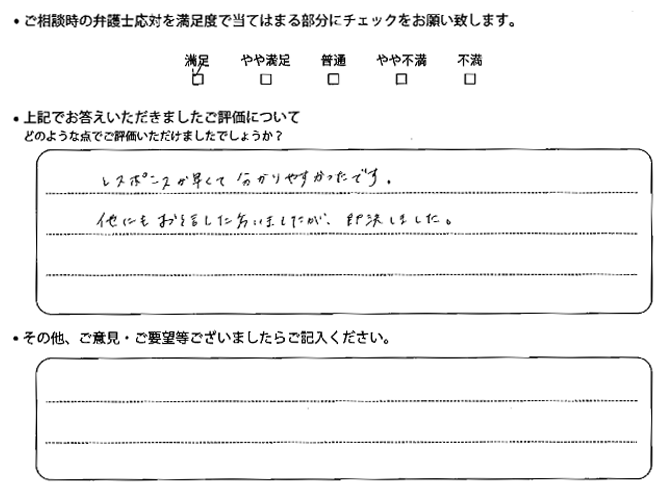 ・ご相談時の弁護士応対を満足度で当てはまる部分にチェックをお願い致します。
満足 やや満足 普通 やや不満 不満
・上記でお答えいただきましたご評価について
どのような点でご評価いただけましたでしょうか?
レスポンスが早くて分かりやすかったです。
他にもお話した方いましたが、即決しました。
・その他、ご意見・ご要望等ございましたらご記入ください。